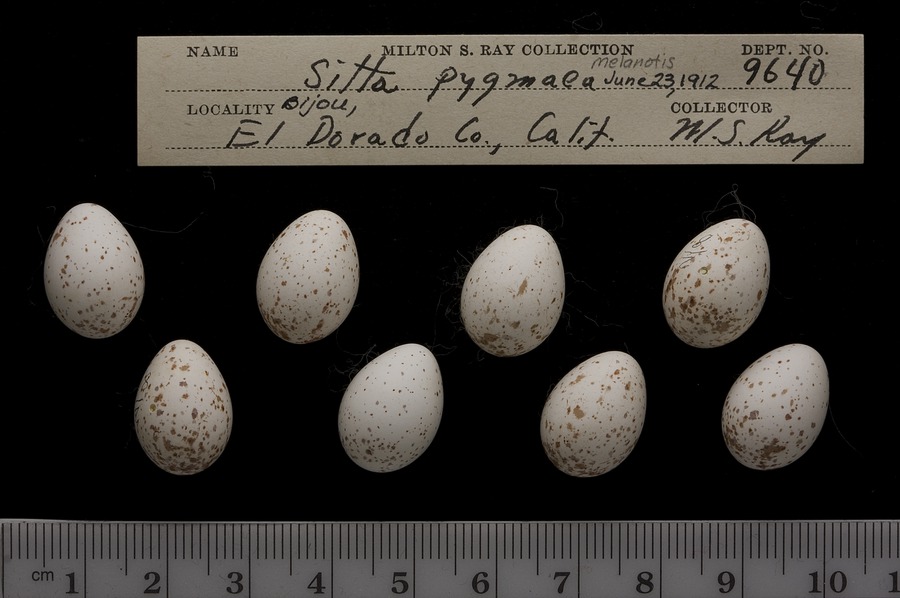 NAME MILTON S. RAY COLLECTION DEPT. NO.
melanotis
Sitta pygmaea June 23, 1912 9640
LOCALITY Bijou, COLLECTOR
El Dorado Co., Calif. M. S. Ray
cm 1 2 3 4 5 6 7 8 9 10 1